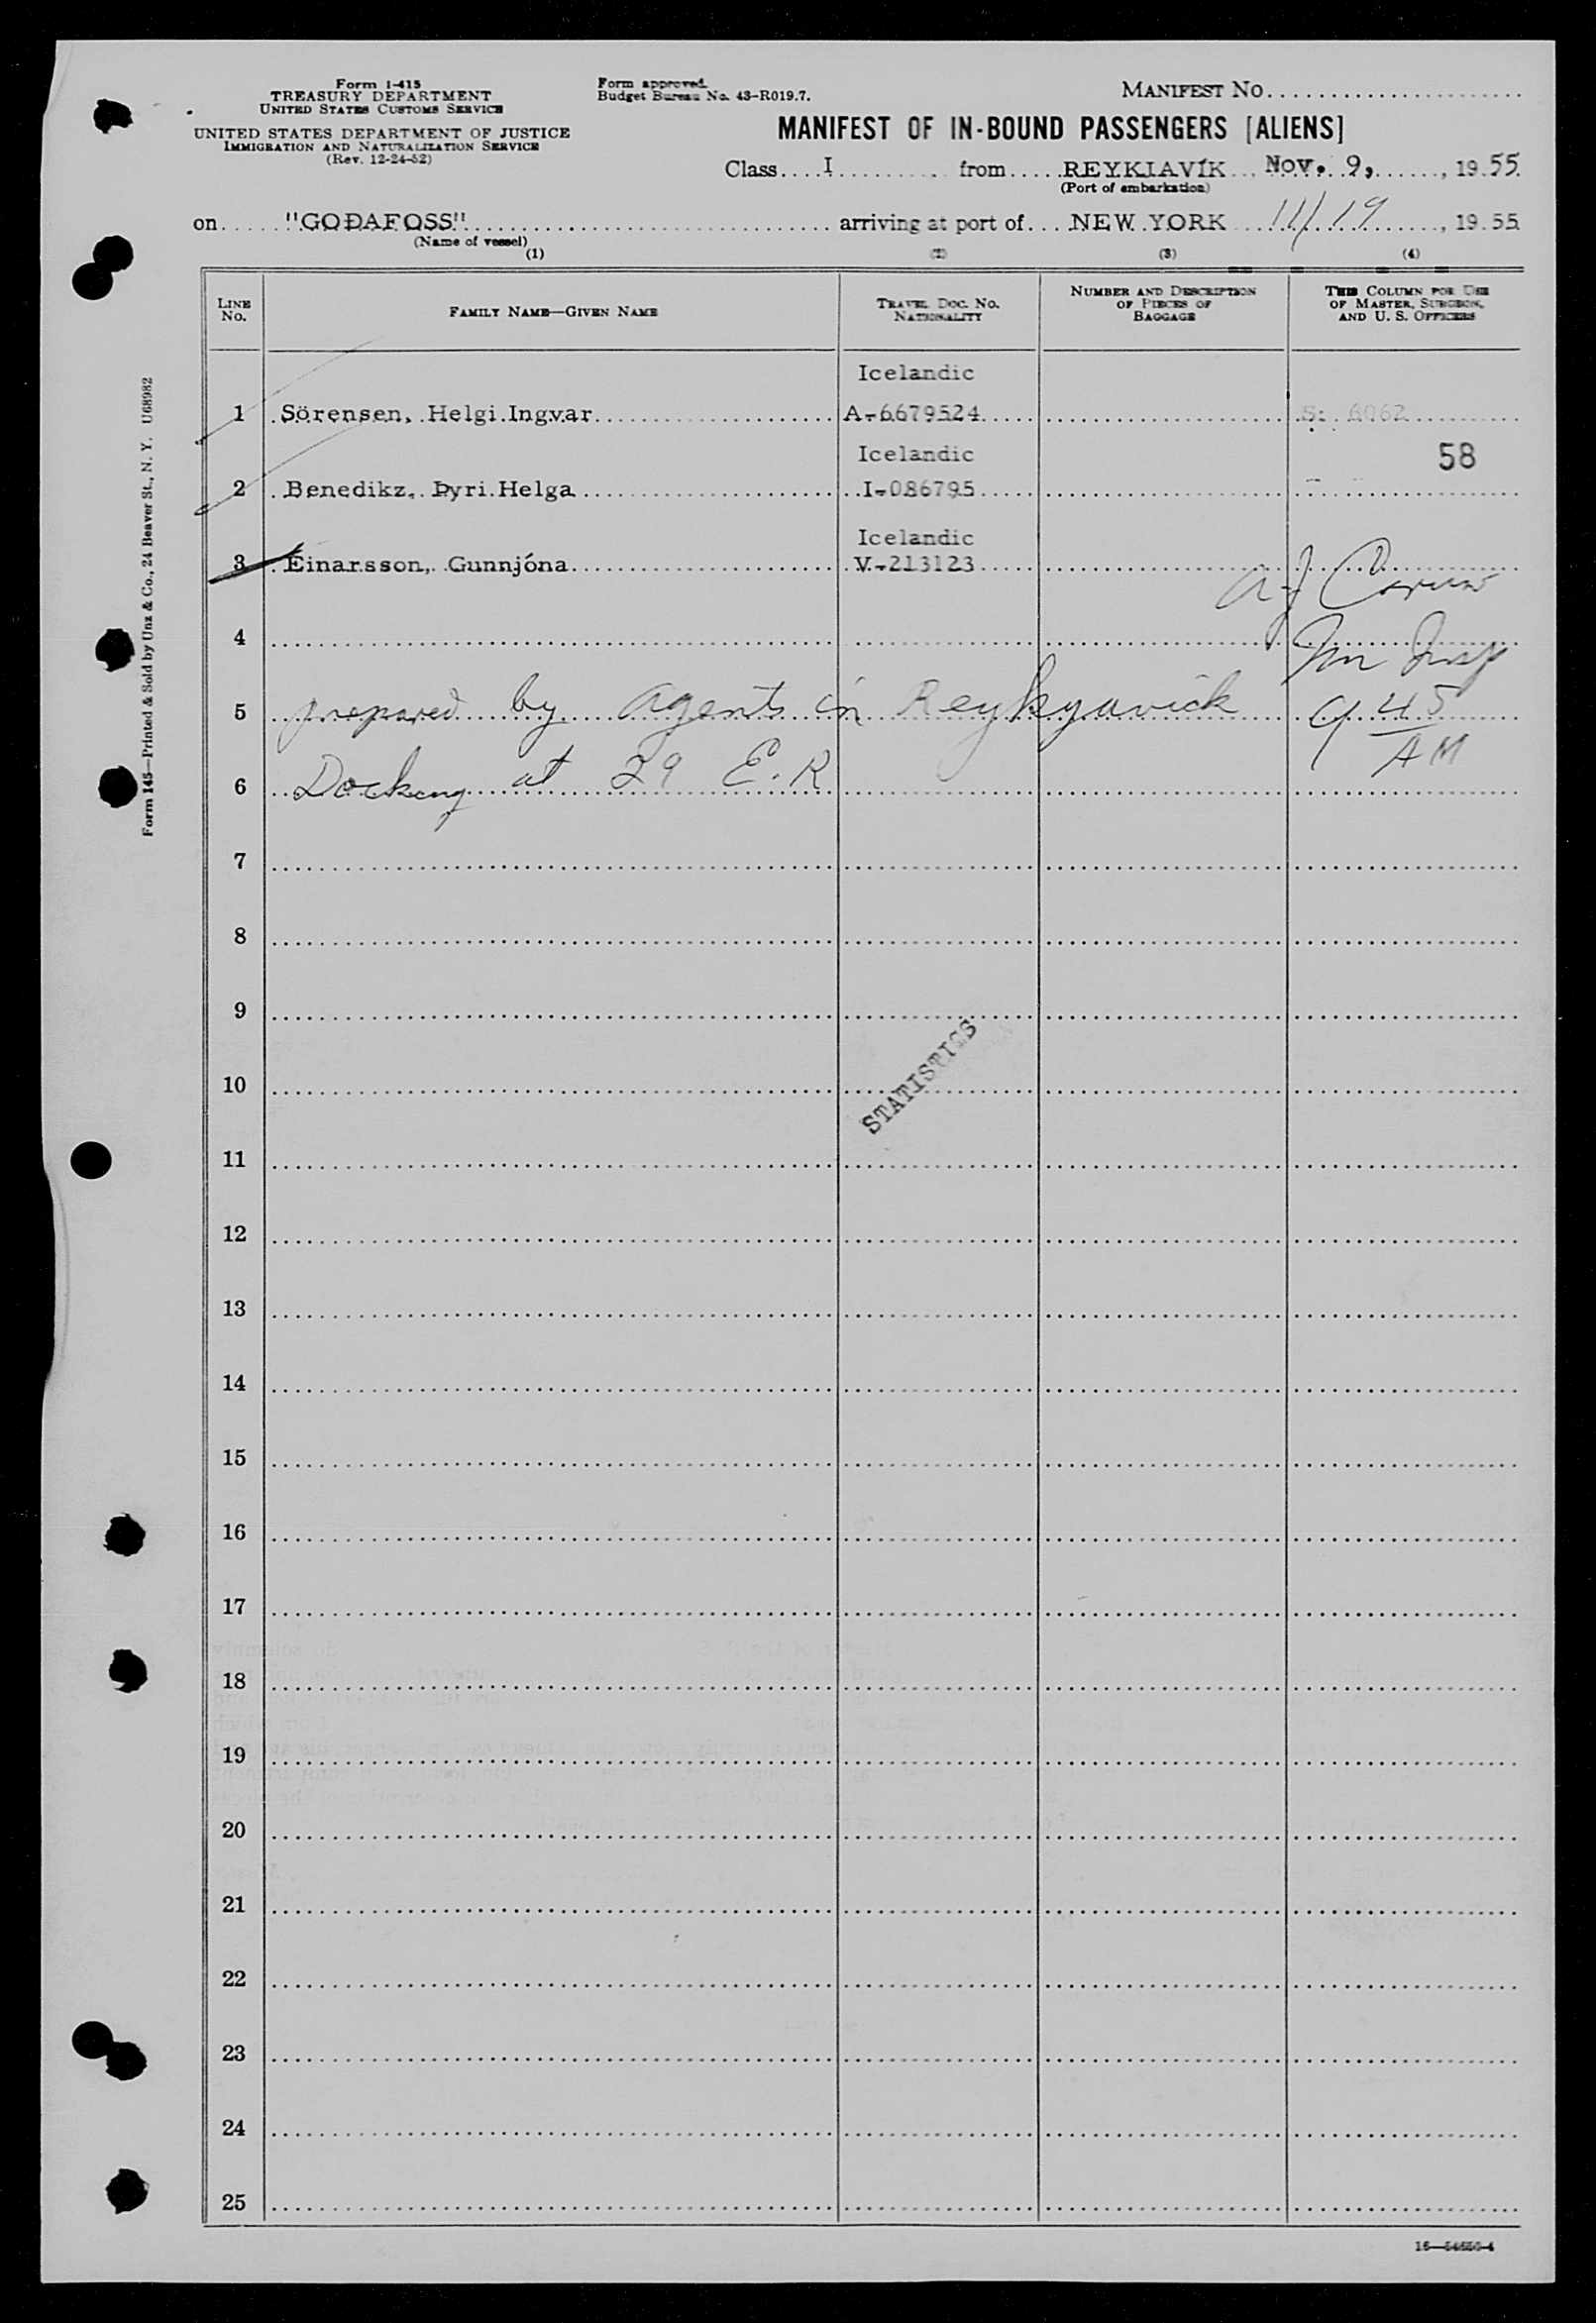 Form I-415
TREASURY DEPARTMENT
UNITED STATES CUSTOMS SERVICE
UNITED STATES DEPARTMENT OF JUSTICE
IMMIGRATION AND NATURALIZATION SERVICE
(Rev. 12-24-52)
Form approved.
Budget Bureau No. 43-R019.7.
MANIFEST NO.
MANIFEST OF IN-BOUND PASSENGERS [ALIENS]
Class I from REYKJAVÍK Nov. 9, 19 55
(Port of embarkation)
on "GOÐAFOSS" arriving at port of NEW YORK 11/19, 19 55
(Name of vessel)
(1) (2) (3) (4)
LINE NO. FAMILY NAME—GIVEN NAME TRAVEL DOC. NO. NATIONALITY NUMBER AND DESCRIPTION OF PIECES OF BAGGAGE THIS COLUMN FOR USE OF MASTER, SURGEON, AND U. S. OFFICERS
Icelandic
1 Sörensen, Helgi Ingvar A-6679524
Icelandic
58
2 Benedikz, Þyri Helga I-086795
Icelandic
3 Einarsson, Gunnjóna V-213123
4
5 prepared by agents in Reykyavick 9 45 AM
6 Docking at 29 E. R
7
8
9
STATISTICS
10
11
12
13
14
15
16
17
18
19
20
21
22
23
24
25
Form 145—Printed & Sold by Unz & Co., 24 Beaver St., N. Y. U68982